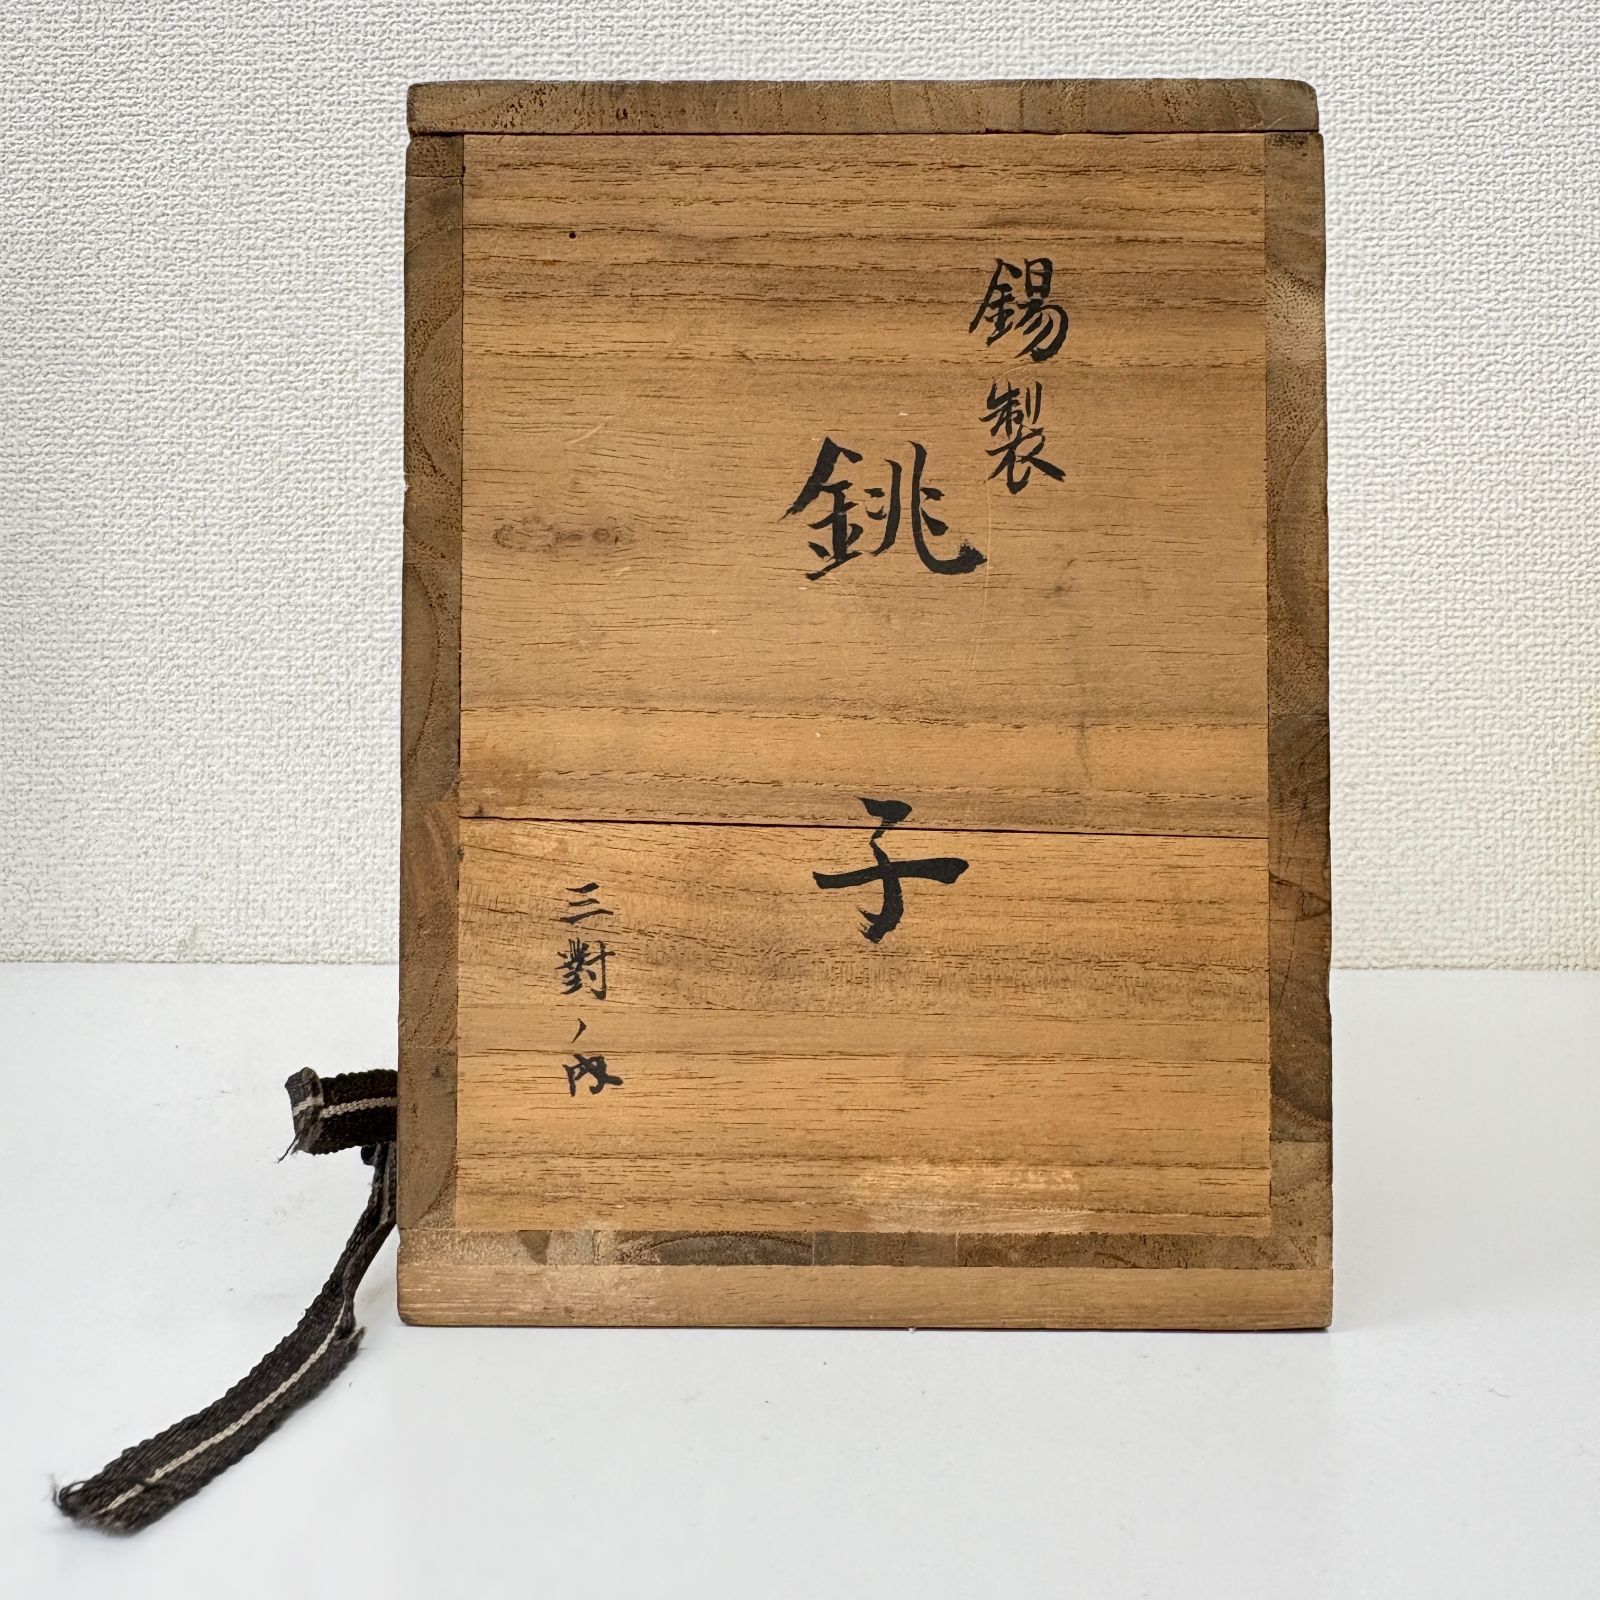 錫製
銚子
三對ノ内